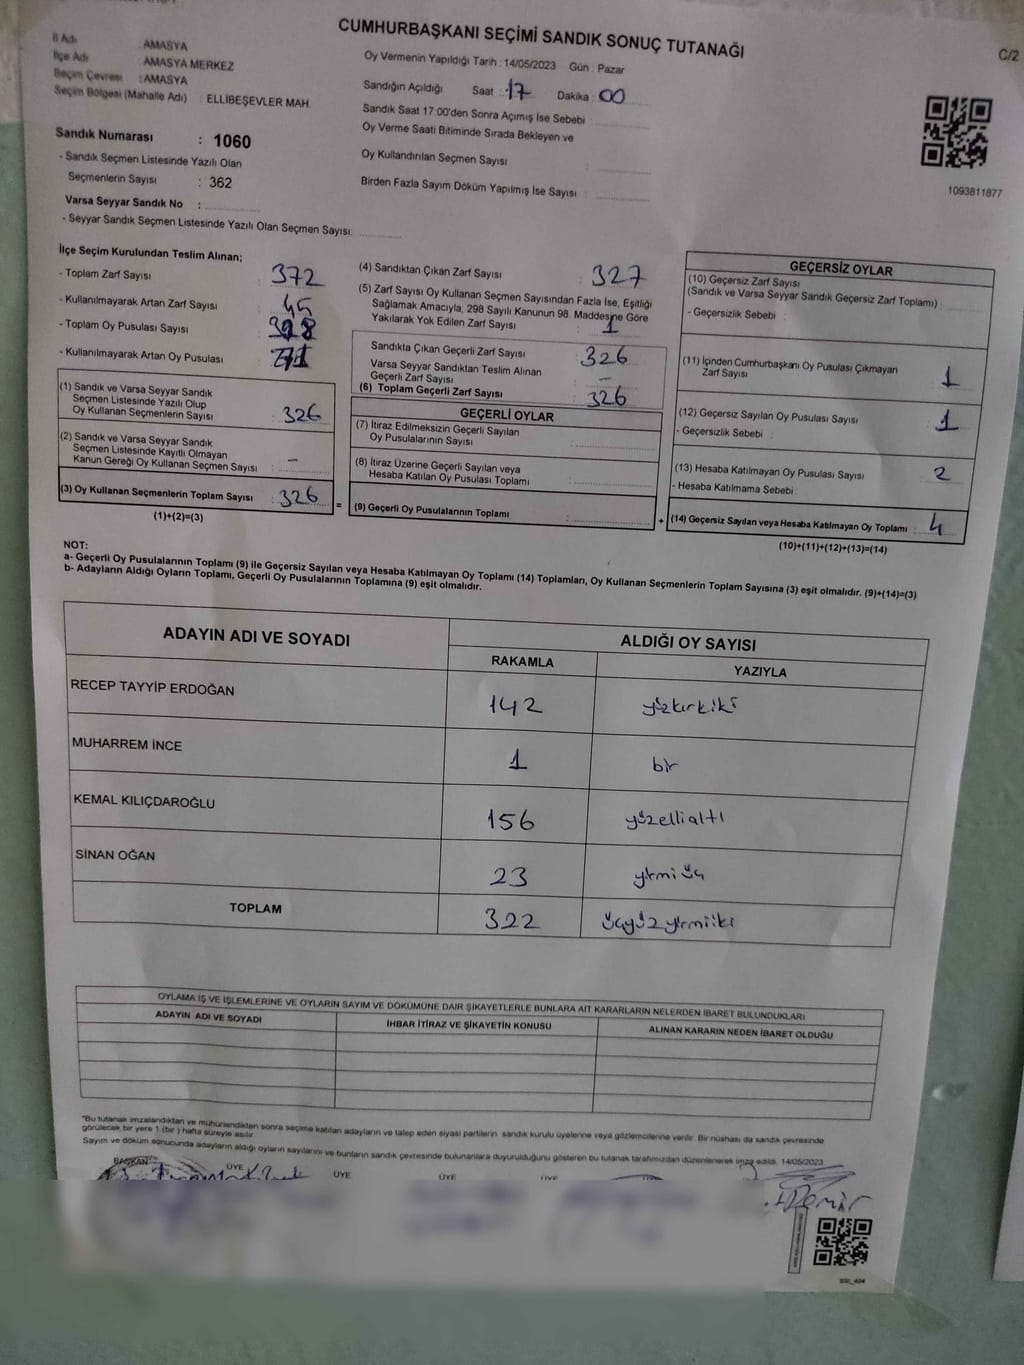 CUMHURBAŞKANI SEÇİMİ SANDIK SONUÇ TUTANAĞI
C/2
İl Adı : AMASYA
İlçe Adı : AMASYA MERKEZ
Seçim Çevresi : AMASYA
Seçim Bölgesi (Mahalle Adı) : ELLİBEŞEVLER MAH.
Oy Vermenin Yapıldığı Tarih : 14/05/2023 Gün : Pazar
Sandığın Açıldığı Saat : 17 Dakika : 00
Sandık Saat 17:00'den Sonra Açımış İse Sebebi :
Oy Verme Saati Bitiminde Sırada Bekleyen ve
Oy Kullandırılan Seçmen Sayısı :
Birden Fazla Sayım Döküm Yapılmış İse Sayısı :
1093811877
Sandık Numarası : 1060
- Sandık Seçmen Listesinde Yazılı Olan
Seçmenlerin Sayısı : 362
Varsa Seyyar Sandık No :
- Seyyar Sandık Seçmen Listesinde Yazılı Olan Seçmen Sayısı:
İlçe Seçim Kurulundan Teslim Alınan;
- Toplam Zarf Sayısı : 372
- Kullanılmayarak Artan Zarf Sayısı : 45
- Toplam Oy Pusulası Sayısı :
- Kullanılmayarak Artan Oy Pusulası :
(1) Sandık ve Varsa Seyyar Sandık
Seçmen Listesinde Yazılı Olup
Oy Kullanan Seçmenlerin Sayısı : 326
(2) Sandık ve Varsa Seyyar Sandık
Seçmen Listesinde Kayıtlı Olmayan
Kanun Gereği Oy Kullanan Seçmen Sayısı : –
(3) Oy Kullanan Seçmenlerin Toplam Sayısı : 326 =
(1)+(2)=(3)
(4) Sandıktan Çıkan Zarf Sayısı : 327
(5) Zarf Sayısı Oy Kullanan Seçmen Sayısından Fazla İse, Eşitliği
Sağlamak Amacıyla, 298 Sayılı Kanunun 98. Maddesine Göre
Yakılarak Yok Edilen Zarf Sayısı : 1
Sandıkta Çıkan Geçerli Zarf Sayısı : 326
Varsa Seyyar Sandıktan Teslim Alınan
Geçerli Zarf Sayısı : –
(6) Toplam Geçerli Zarf Sayısı : 326
GEÇERLİ OYLAR
(7) İtiraz Edilmeksizin Geçerli Sayılan
Oy Pusulalarının Sayısı :
(8) İtiraz Üzerine Geçerli Sayılan veya
Hesaba Katılan Oy Pusulası Toplamı :
(9) Geçerli Oy Pusulalarının Toplamı : +
GEÇERSİZ OYLAR
(10) Geçersiz Zarf Sayısı
(Sandık ve Varsa Seyyar Sandık Geçersiz Zarf Toplamı) :
- Geçersizlik Sebebi :
(11) İçinden Cumhurbaşkanı Oy Pusulası Çıkmayan
Zarf Sayısı : 1
(12) Geçersiz Sayılan Oy Pusulası Sayısı : 1
- Geçersizlik Sebebi :
(13) Hesaba Katılmayan Oy Pusulası Sayısı : 2
- Hesaba Katılmama Sebebi :
(14) Geçersiz Sayılan veya Hesaba Katılmayan Oy Toplamı : 4
(10)+(11)+(12)+(13)=(14)
NOT:
a- Geçerli Oy Pusulalarının Toplamı (9) ile Geçersiz Sayılan veya Hesaba Katılmayan Oy Toplamı (14) Toplamları, Oy Kullanan Seçmenlerin Toplam Sayısına (3) eşit olmalıdır. (9)+(14)=(3)
b- Adayların Aldığı Oyların Toplamı, Geçerli Oy Pusulalarının Toplamına (9) eşit olmalıdır.
ADAYIN ADI VE SOYADI
ALDIĞI OY SAYISI
RAKAMLA YAZIYLA
RECEP TAYYİP ERDOĞAN 142 yüzkırkiki
MUHARREM İNCE 1 bir
KEMAL KILIÇDAROĞLU 156 yüzellialtı
SİNAN OĞAN 23 yirmiüç
TOPLAM 322 üçyüzyirmiiki
OYLAMA İŞ VE İŞLEMLERİNE VE OYLARIN SAYIM VE DÖKÜMÜNE DAİR ŞİKAYETLERLE BUNLARA AİT KARARLARIN NELERDEN İBARET BULUNDUKLARI
ADAYIN ADI VE SOYADI İHBAR İTİRAZ VE ŞİKAYETİN KONUSU ALINAN KARARIN NEDEN İBARET OLDUĞU
"Bu tutanak imzalandıktan ve mühürlendikten sonra seçime katılan adayların ve talep eden siyasi partilerin sandık kurulu üyelerine veya gözlemcilerine verilir. Bir nüshası da sandık çevresinde
görülecek bir yere 1 (bir) hafta süreyle asılır.
Sayım ve döküm sonucunda adayların aldığı oyların sayılarını ve bunların sandık çevresinde bulunanlara duyurulduğunu gösteren bu tutanak tarafımızdan düzenlenerek imza edildi. 14/05/2023
BAŞKAN ÜYE ÜYE ÜYE ÜYE ÜYE
Demir